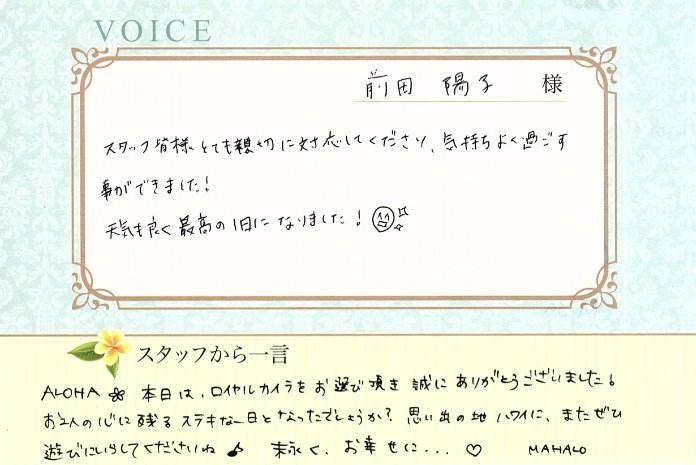 VOICE
前田 陽子 様
スタッフ皆様、とても親切に対応してくださり、気持ちよく過ごす
事ができました!
天気も良く最高の1日になりました!
スタッフから一言
ALOHA 本日は、ロイヤルカイラをお選び頂き誠にありがとうございました!
お2人の心に残るステキな一日となったでしょうか? 思い出の地ハワイに、またぜひ
遊びにいらしてくださいね♪ 末永く、お幸せに...♡ MAHALO